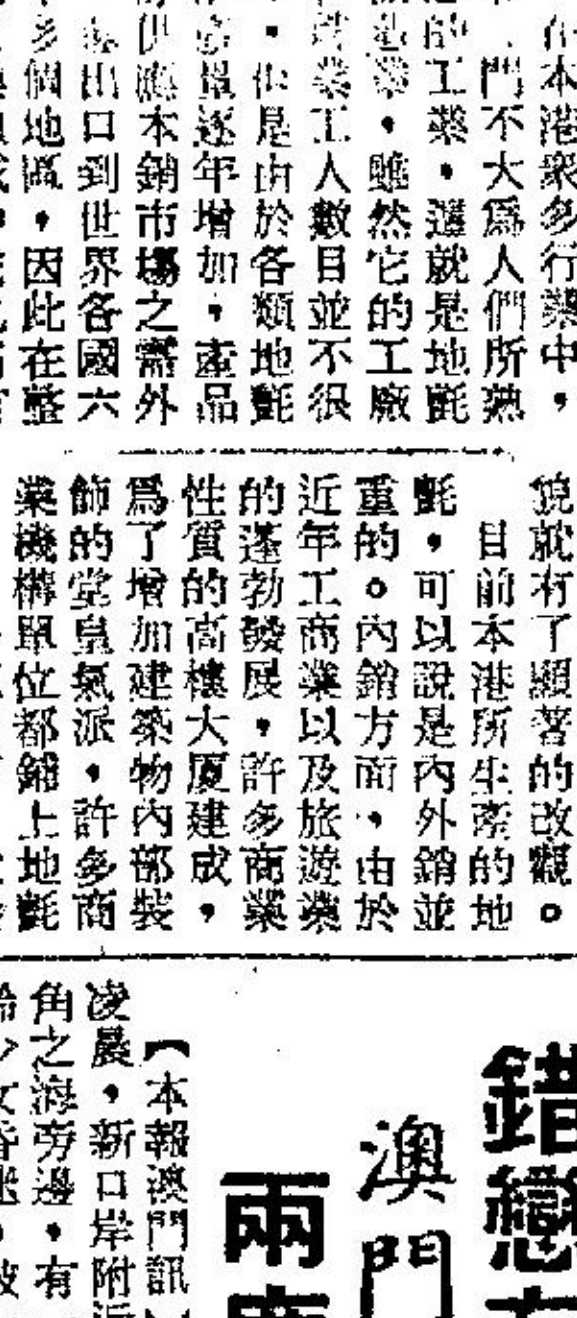 在本港衆多行業中，
門不大爲人們所熟
的工業，這就是地氈
業，雖然它的工廠
業工人數目並不很
，但是由於各類地氈
產量逐年增加，產品
供應本銷市場之需外
出口到世界各國六
多個地區，因此在整
貌就有了顯著的改觀。
目前本港所生產的地
氈，可以說是內外銷並
重的。內銷方面，由於
近年工商業以及旅遊業
的蓬勃發展，許多商業
性質的高樓大厦建成，
爲了增加建築物內部裝
飾的堂皇氣派，許多商
業機構單位都鋪上地氈
錯戀
澳門
兩
【本報澳門訊】
凌晨，新口岸附近
角之海旁邊，有